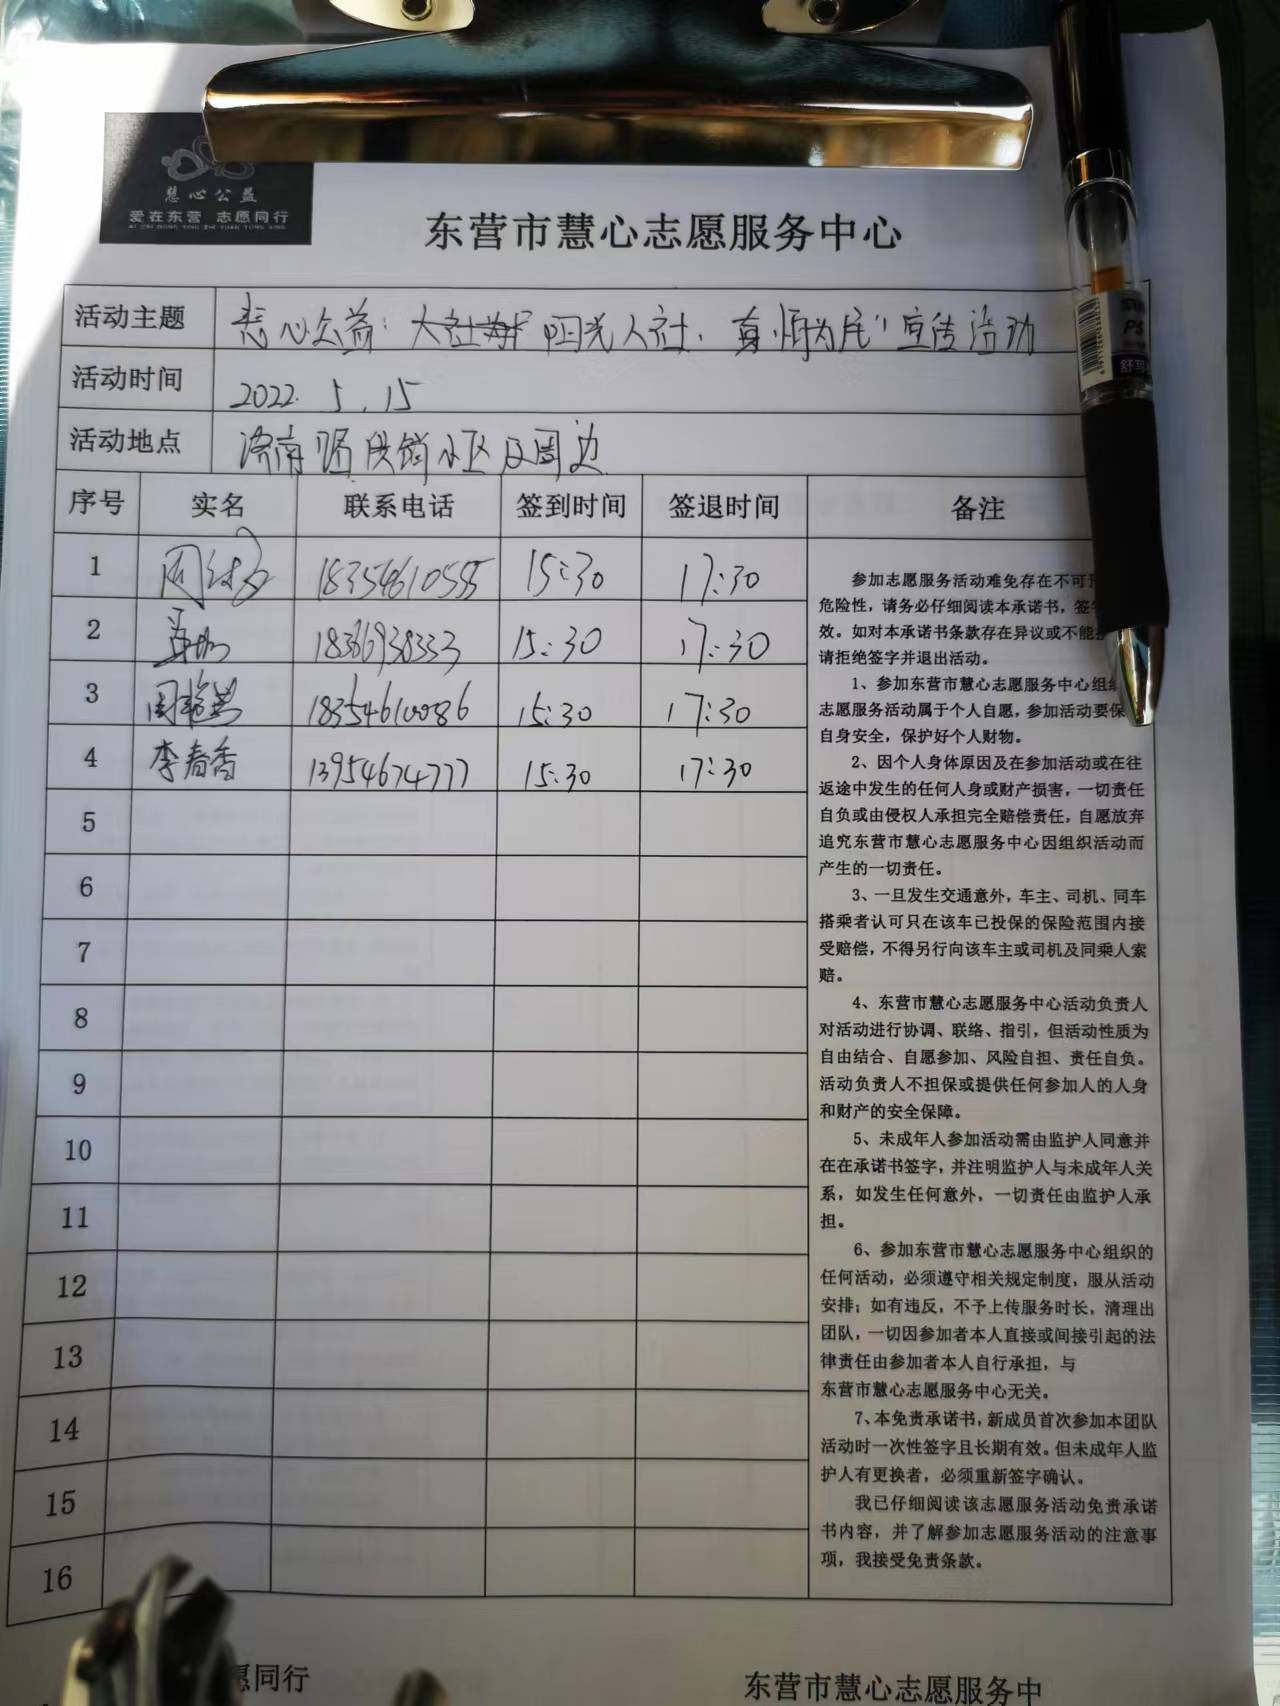 慧心公益
爱在东营 志愿同行
AI ZAI DONG YING ZHI YUAN TONG XING
东营市慧心志愿服务中心
活动主题 慧心公益: 阳光人社、真情为民"宣传活动
活动时间 2022. 5. 15
活动地点 济南路供销小区及周边
序号 实名 联系电话 签到时间 签退时间 备注
1 18354610555 15:30 17:30
2 15:30 17:30
3 18354610086 15:30 17:30
4 李春香 13954674777 15:30 17:30
5
6
7
8
9
10
11
12
13
14
15
16
参加志愿服务活动难免存在不可
危险性，请务必仔细阅读本承诺书，签
效。如对本承诺书条款存在异议或不能
请拒绝签字并退出活动。
1、参加东营市慧心志愿服务中心组织
志愿服务活动属于个人自愿，参加活动要保
自身安全，保护好个人财物。
2、因个人身体原因及在参加活动或在往
返途中发生的任何人身或财产损害，一切责任
自负或由侵权人承担完全赔偿责任，自愿放弃
追究东营市慧心志愿服务中心因组织活动而
产生的一切责任。
3、一旦发生交通意外，车主、司机、同车
搭乘者认可只在该车已投保的保险范围内接
受赔偿，不得另行向该车主或司机及同乘人索
赔。
4、东营市慧心志愿服务中心活动负责人
对活动进行协调、联络、指引，但活动性质为
自由结合、自愿参加、风险自担、责任自负。
活动负责人不担保或提供任何参加人的人身
和财产的安全保障。
5、未成年人参加活动需由监护人同意并
在在承诺书签字，并注明监护人与未成年人关
系，如发生任何意外，一切责任由监护人承
担。
6、参加东营市慧心志愿服务中心组织的
任何活动，必须遵守相关规定制度，服从活动
安排；如有违反，不予上传服务时长，清理出
团队，一切因参加者本人直接或间接引起的法
律责任由参加者本人自行承担，与
东营市慧心志愿服务中心无关。
7、本免责承诺书，新成员首次参加本团队
活动时一次性签字且长期有效。但未成年人监
护人有更换者，必须重新签字确认。
我已仔细阅读该志愿服务活动免责承诺
书内容，并了解参加志愿服务活动的注意事
项，我接受免责条款。
愿同行 东营市慧心志愿服务中